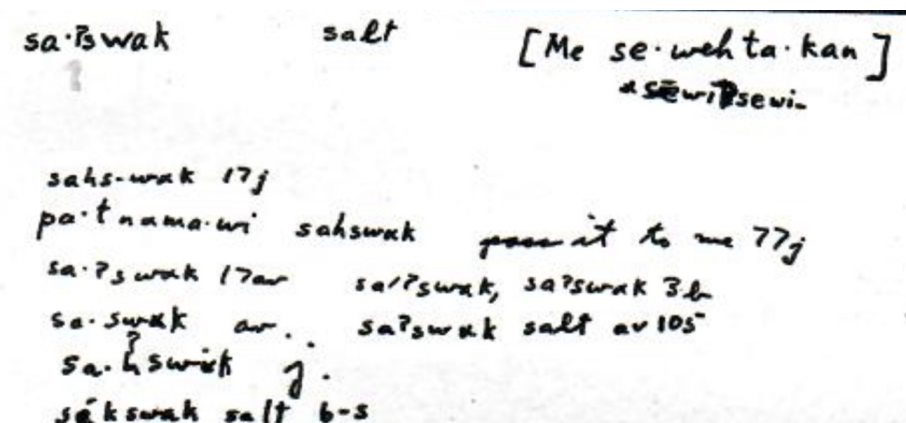 sa·ʔswak salt [Me se·wehta·kan]
sahs-wak 17j
pa·tnama·wi sahswak pass it to me 77j
sa·ʔswak 17av sa/ʔswak, saʔswak 3b
sa·swak av. saʔswak salt av105
ʔ
sa·hswɨk j.
sákswak salt b-s